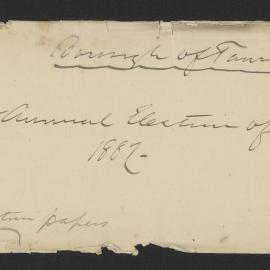 Borough of
Annual Election of
1887
papers